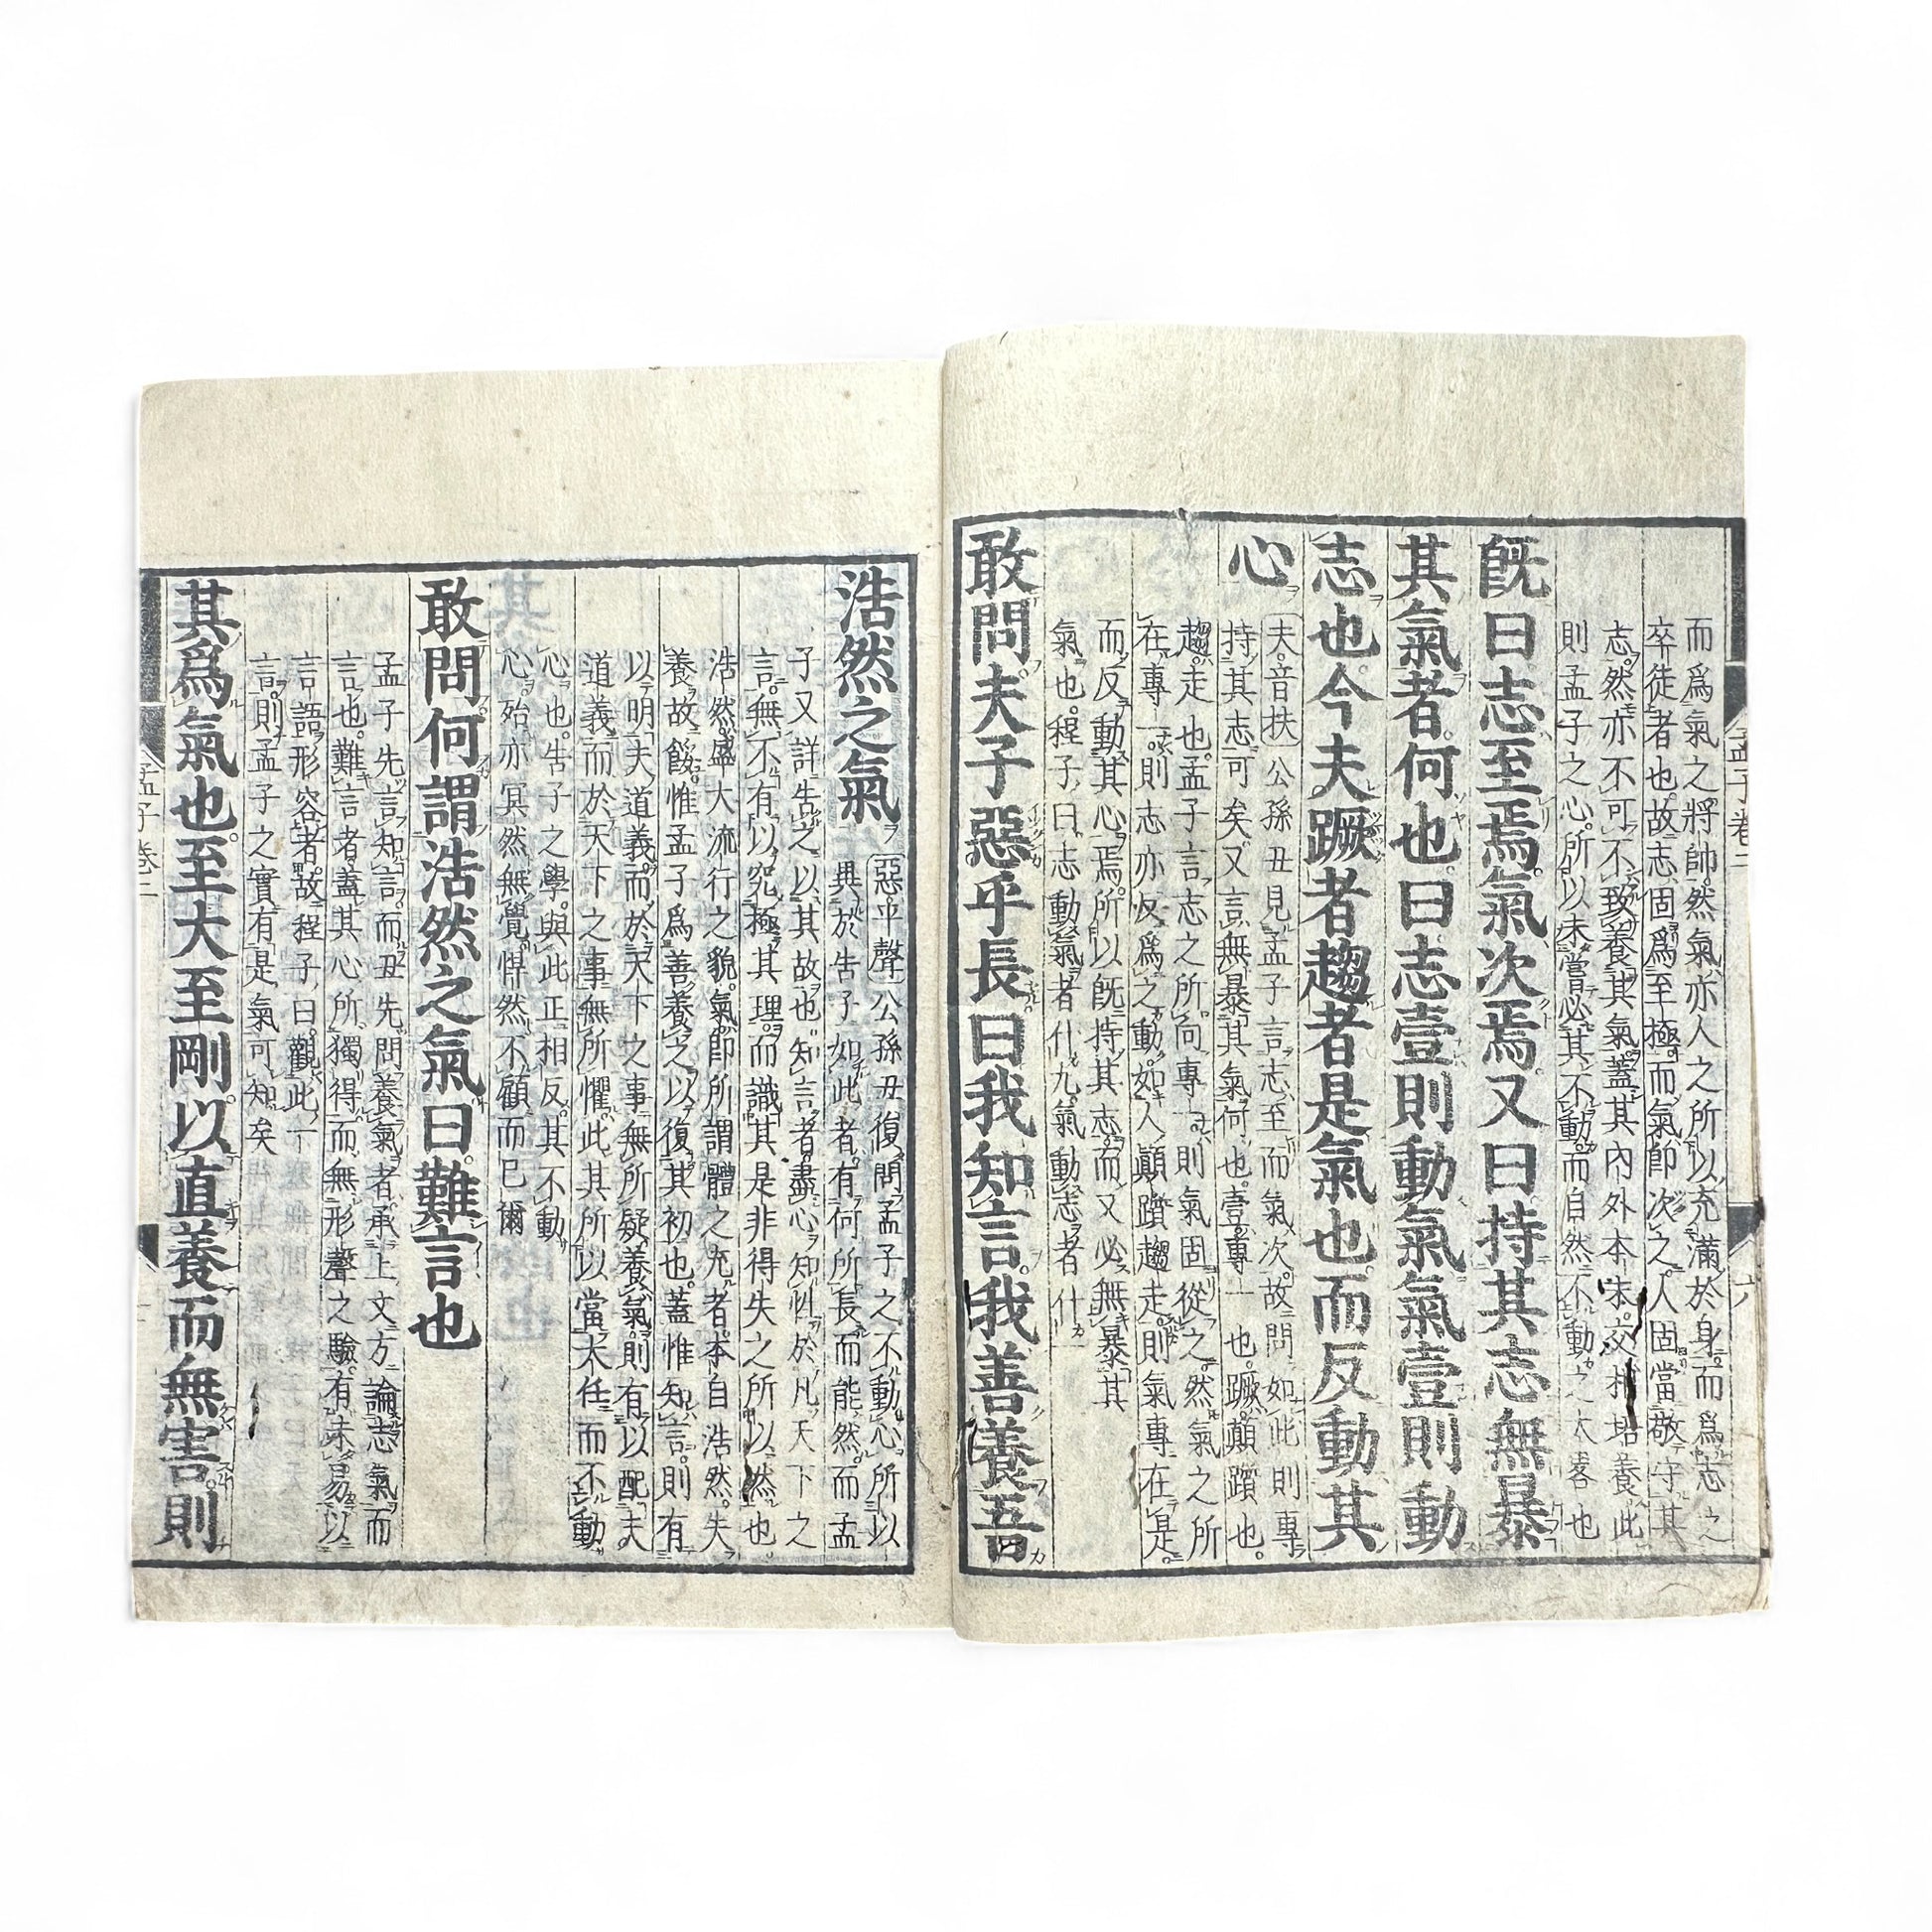 而爲氣之將帥然氣亦人之所以充滿於身而爲志之
卒徒者也故志固爲至極而氣卽次之人固當敬守其
志然亦不可不致養其氣蓋其內外本末交相培養此
則孟子之心所以未嘗必其不動而自然不動之大畧也
既曰志至焉氣次焉又曰持其志無暴
其氣者何也曰志壹則動氣氣壹則動
志也今夫蹶者趨者是氣也而反動其
心
夫音扶公孫丑見孟子言志至而氣次故問如此則專
持其志可矣又言無暴其氣何也壹專一也蹶顚躓也
趨走也孟子言志之所向專一則氣固從之然氣之所
在專一則志亦反爲之動如人顚躓趨走則氣專在是
而反動其心焉所以既持其志而又必無暴其
氣也程子曰志動氣者什九氣動志者什一
敢問夫子惡乎長曰我知言我善養吾
浩然之氣
惡平聲公孫丑復問孟子之不動心所以
異於告子如此者有何所長而能然而孟
子又詳告之以其故也知言者盡心知性於凡天下之
言無不有以究極其理而識其是非得失之所以然也
浩然盛大流行之貌氣卽所謂體之充者本自浩然失
養故餒惟孟子爲善養之以復其初也蓋惟知言則有
以明夫道義而於天下之事無所疑養氣則有以配夫
道義而於天下之事無所懼此其所以當大任而不動
心也告子之學與此正相反其不動
心殆亦冥然無覺悍然不顧而已爾
敢問何謂浩然之氣曰難言也
孟子先言知言而丑先問養氣者承上文方論志氣而
言也難言者蓋其心所獨得而無形聲之驗有未易以
言語形容者故程子曰觀此一
言則孟子之實有是氣可知矣
其爲氣也至大至剛以直養而無害則
孟子卷二